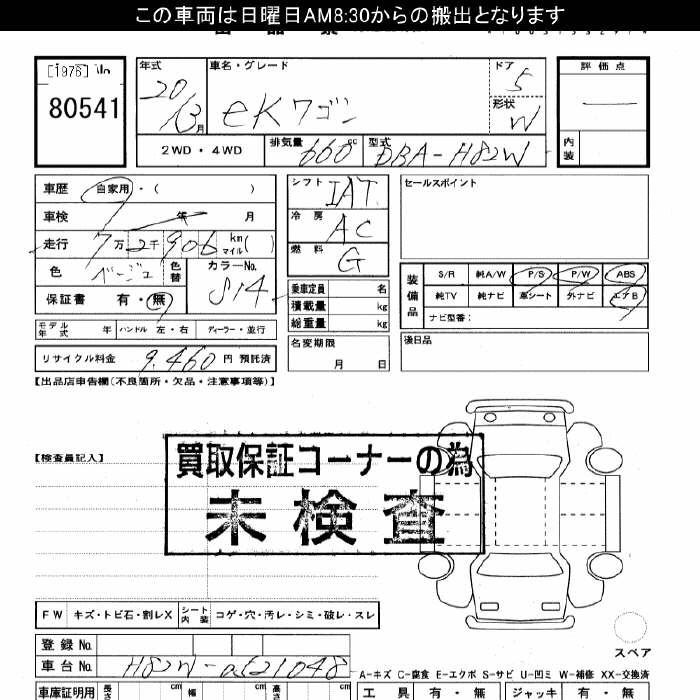 この車両は日曜日AM8:30からの搬出となります
[1976]
80541
年式 20/3月
車名・グレード eKワゴン
ドア 5
形状 W
評価点
内装
2WD・4WD
排気量 660cc
型式 DBA-H82W
車歴 自家用・( )
車検 年 月
走行 7万2千906 km マイル( )
色 ベージュ 色替
カラーNo. S14
保証書 有・無
シフト IAT
冷房 AC
燃料 G
乗車定員 名
積載量 kg
総重量 kg
名変期限 月 日
セールスポイント
装備品
S/R 純A/W P/S P/W ABS
純TV 純ナビ 革シート 外ナビ エアB
ナビ型番:
後日品
モデル年式 年 ハンドル 左・右 ディーラー・並行
リサイクル料金 9,460 円 預託済
【出品店申告欄(不良箇所・欠品・注意事項等)】
【検査員記入】
買取保証コーナーの為
未検査
FW キズ・トビ石・割レX シート内装 コゲ・穴・汚レ・シミ・破レ・スレ
登録No.
車台No. H82W-
スペア
A-キズ C-腐食 E-エクボ S-サビ U-凹ミ W-補修 XX-交換済
車庫証明用 長さ cm 幅 cm cm
工具 有・無 ジャッキ 有・無